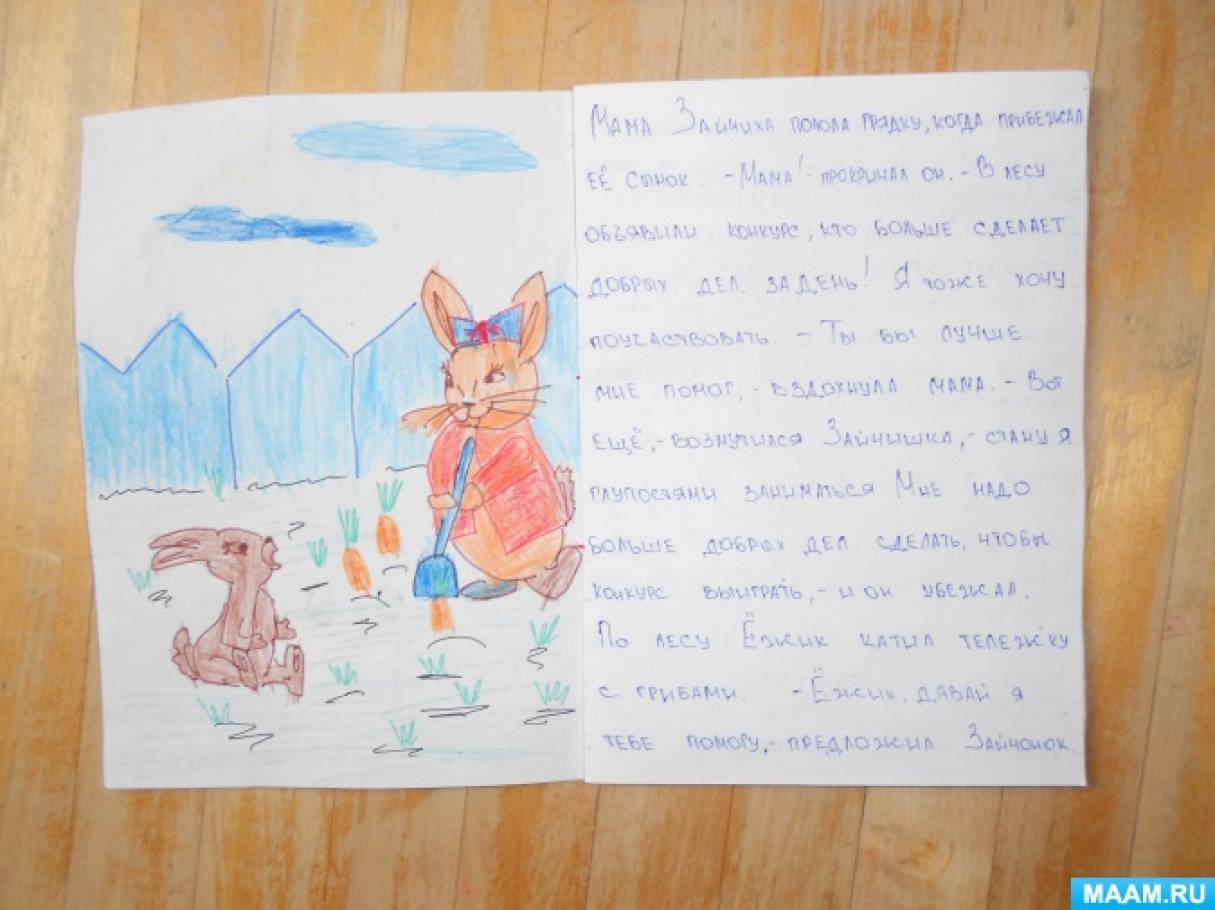 Мама Зайчиха полола грядку, когда прибежал
её сынок. - Мама! - прокричал он. - В лесу
объявили конкурс, кто больше сделает
добрых дел за день! Я тоже хочу
поучаствовать. - Ты бы лучше
мне помог, - вздохнула мама. - Вот
ещё, - возмутился Зайчишка, - стану я
глупостями заниматься. Мне надо
больше добрых дел сделать, чтобы
конкурс выиграть, - и он убежал.
По лесу Ёжик катил тележку
с грибами. - Ёжик, давай я
тебе помогу, - предложил Зайчонок
MAAM.RU